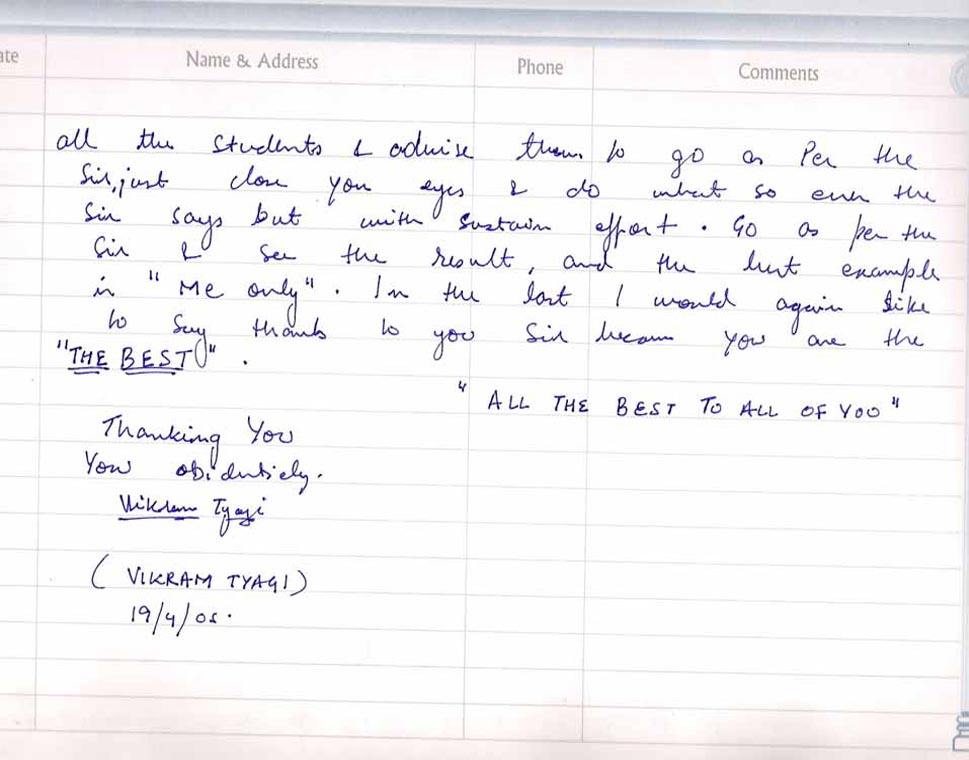 ate Name & Address Phone Comments
all the students & advise them to go as Per the
Sir, just close you eyes & do what so ever the
Sir says but with sustain effort. Go as per the
Sir & see the result, and the best example
is "Me only". In the last I would again like
to say thanks to you Sir because you are the
"THE BEST".
" ALL THE BEST TO ALL OF YOU "
Thanking You
Your obidntiely.
Vikram Tyagi
( VIKRAM TYAGI )
19/4/05.